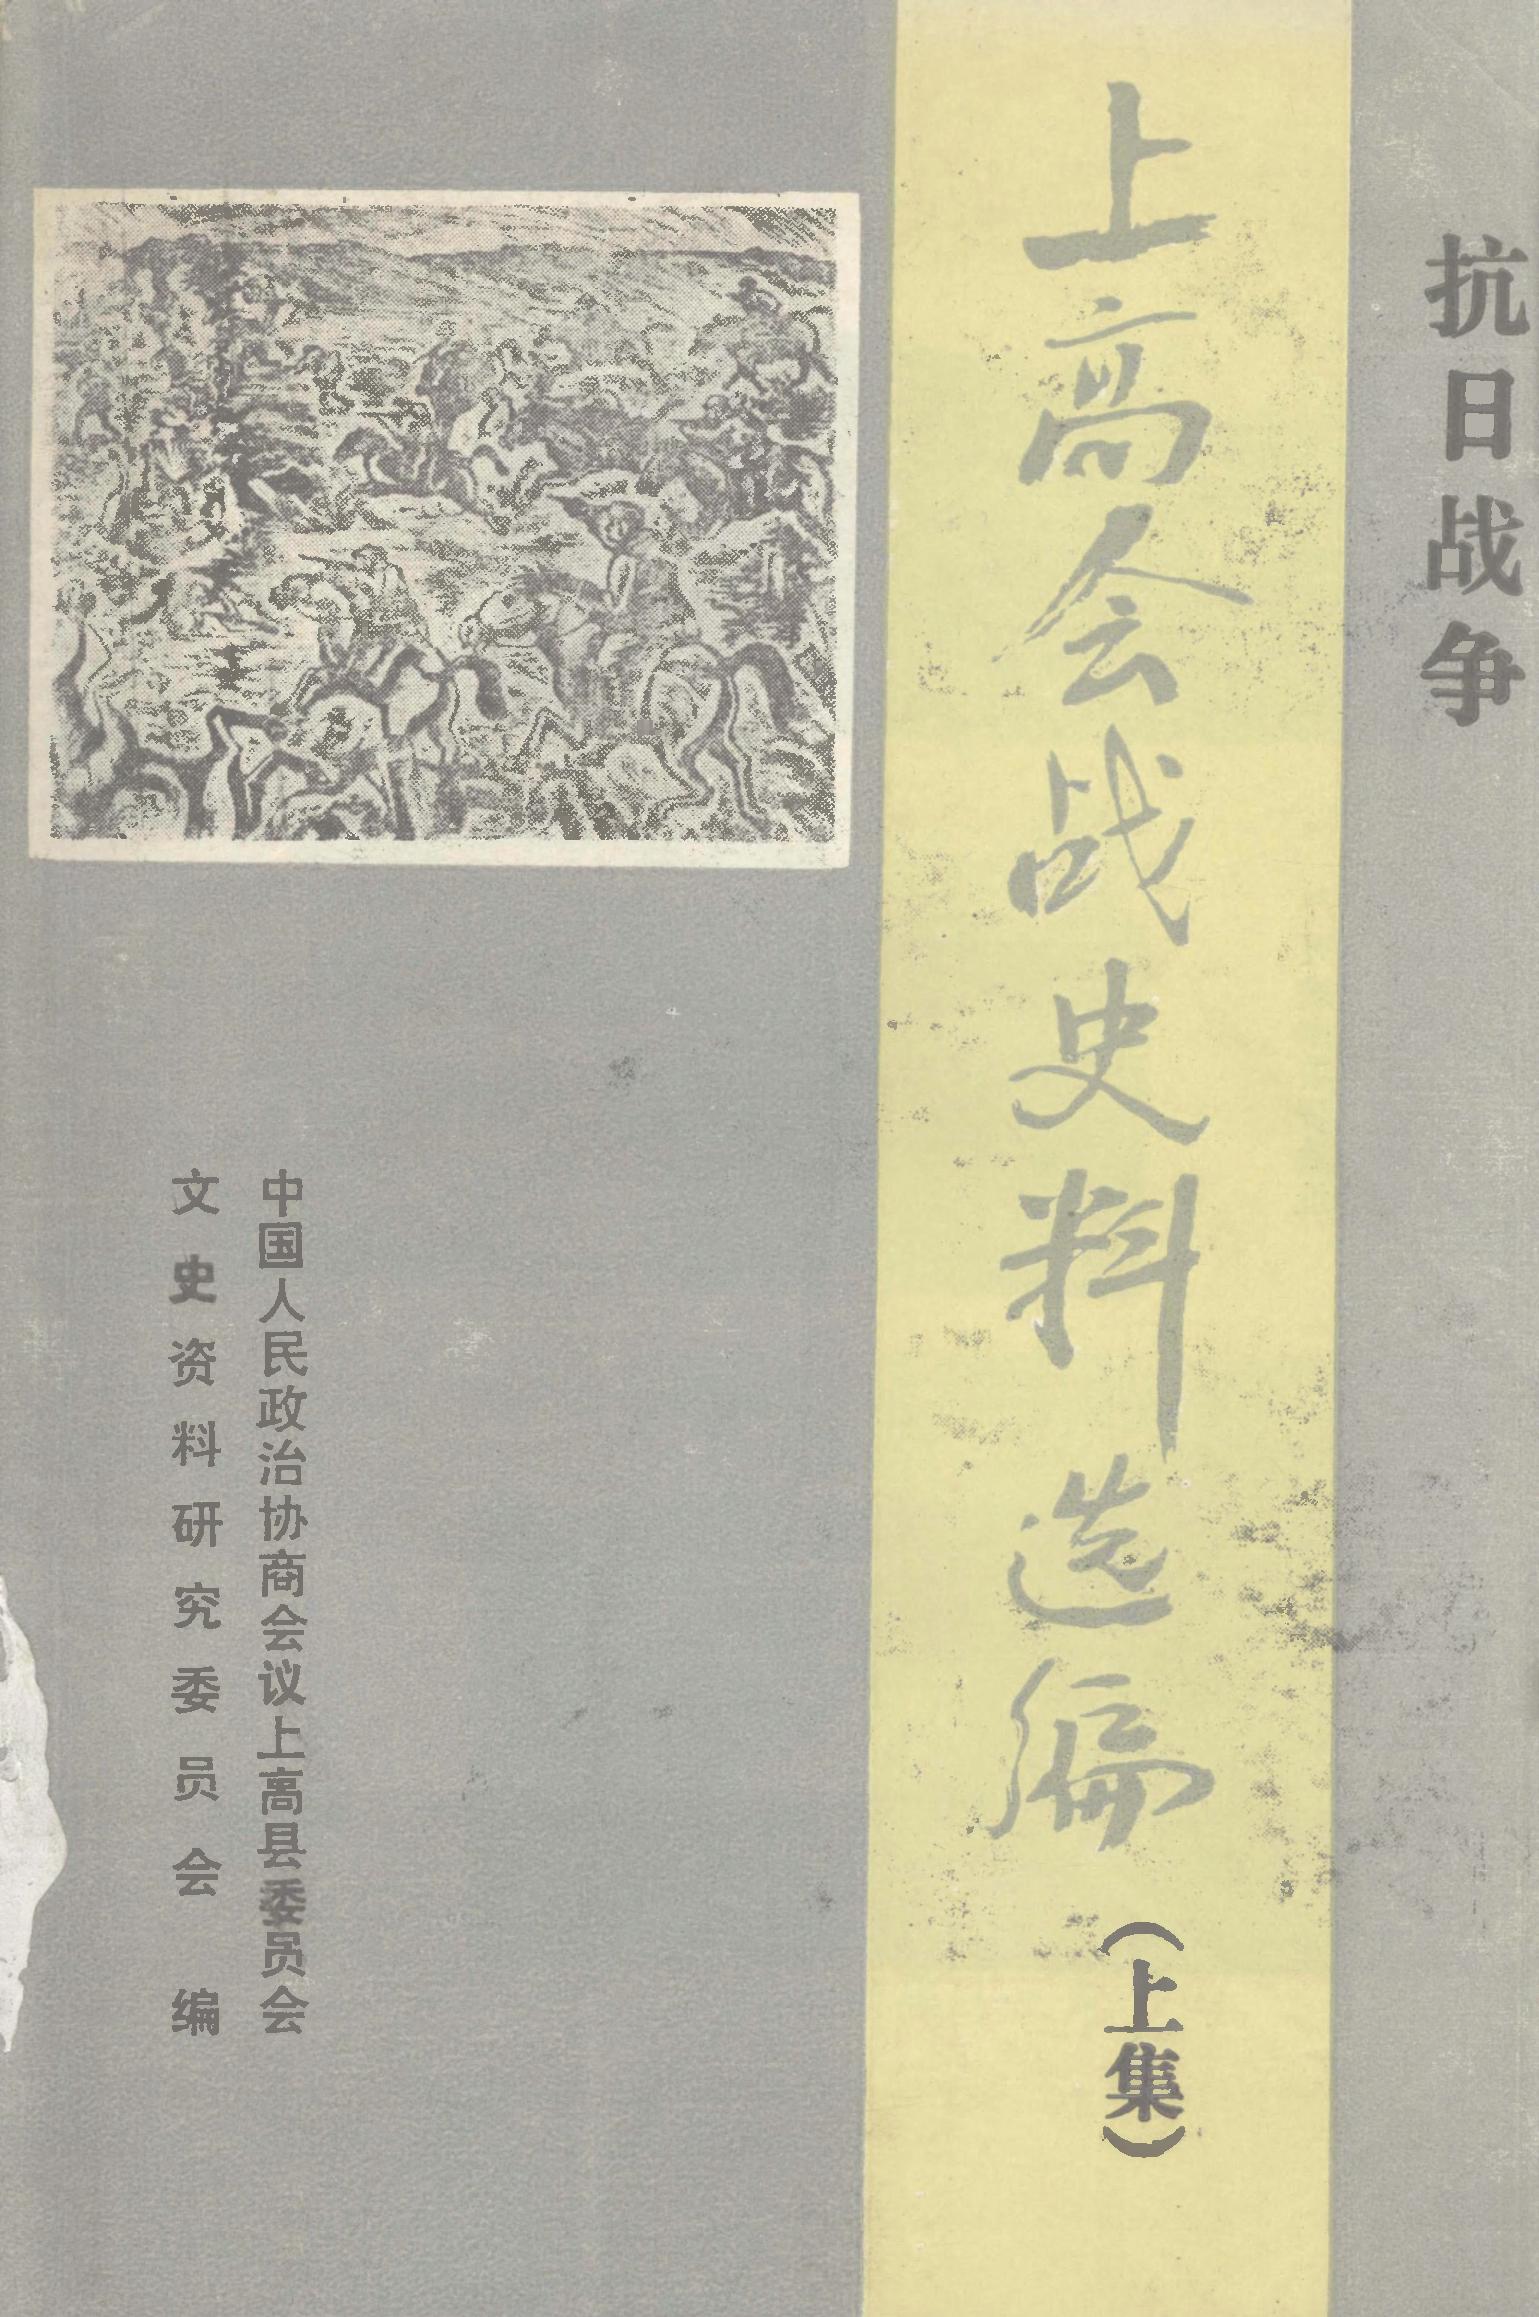 抗日战争
上高会战史料选编
（上集）
中国人民政治协商会议上高县委员会
文史资料研究委员会 编